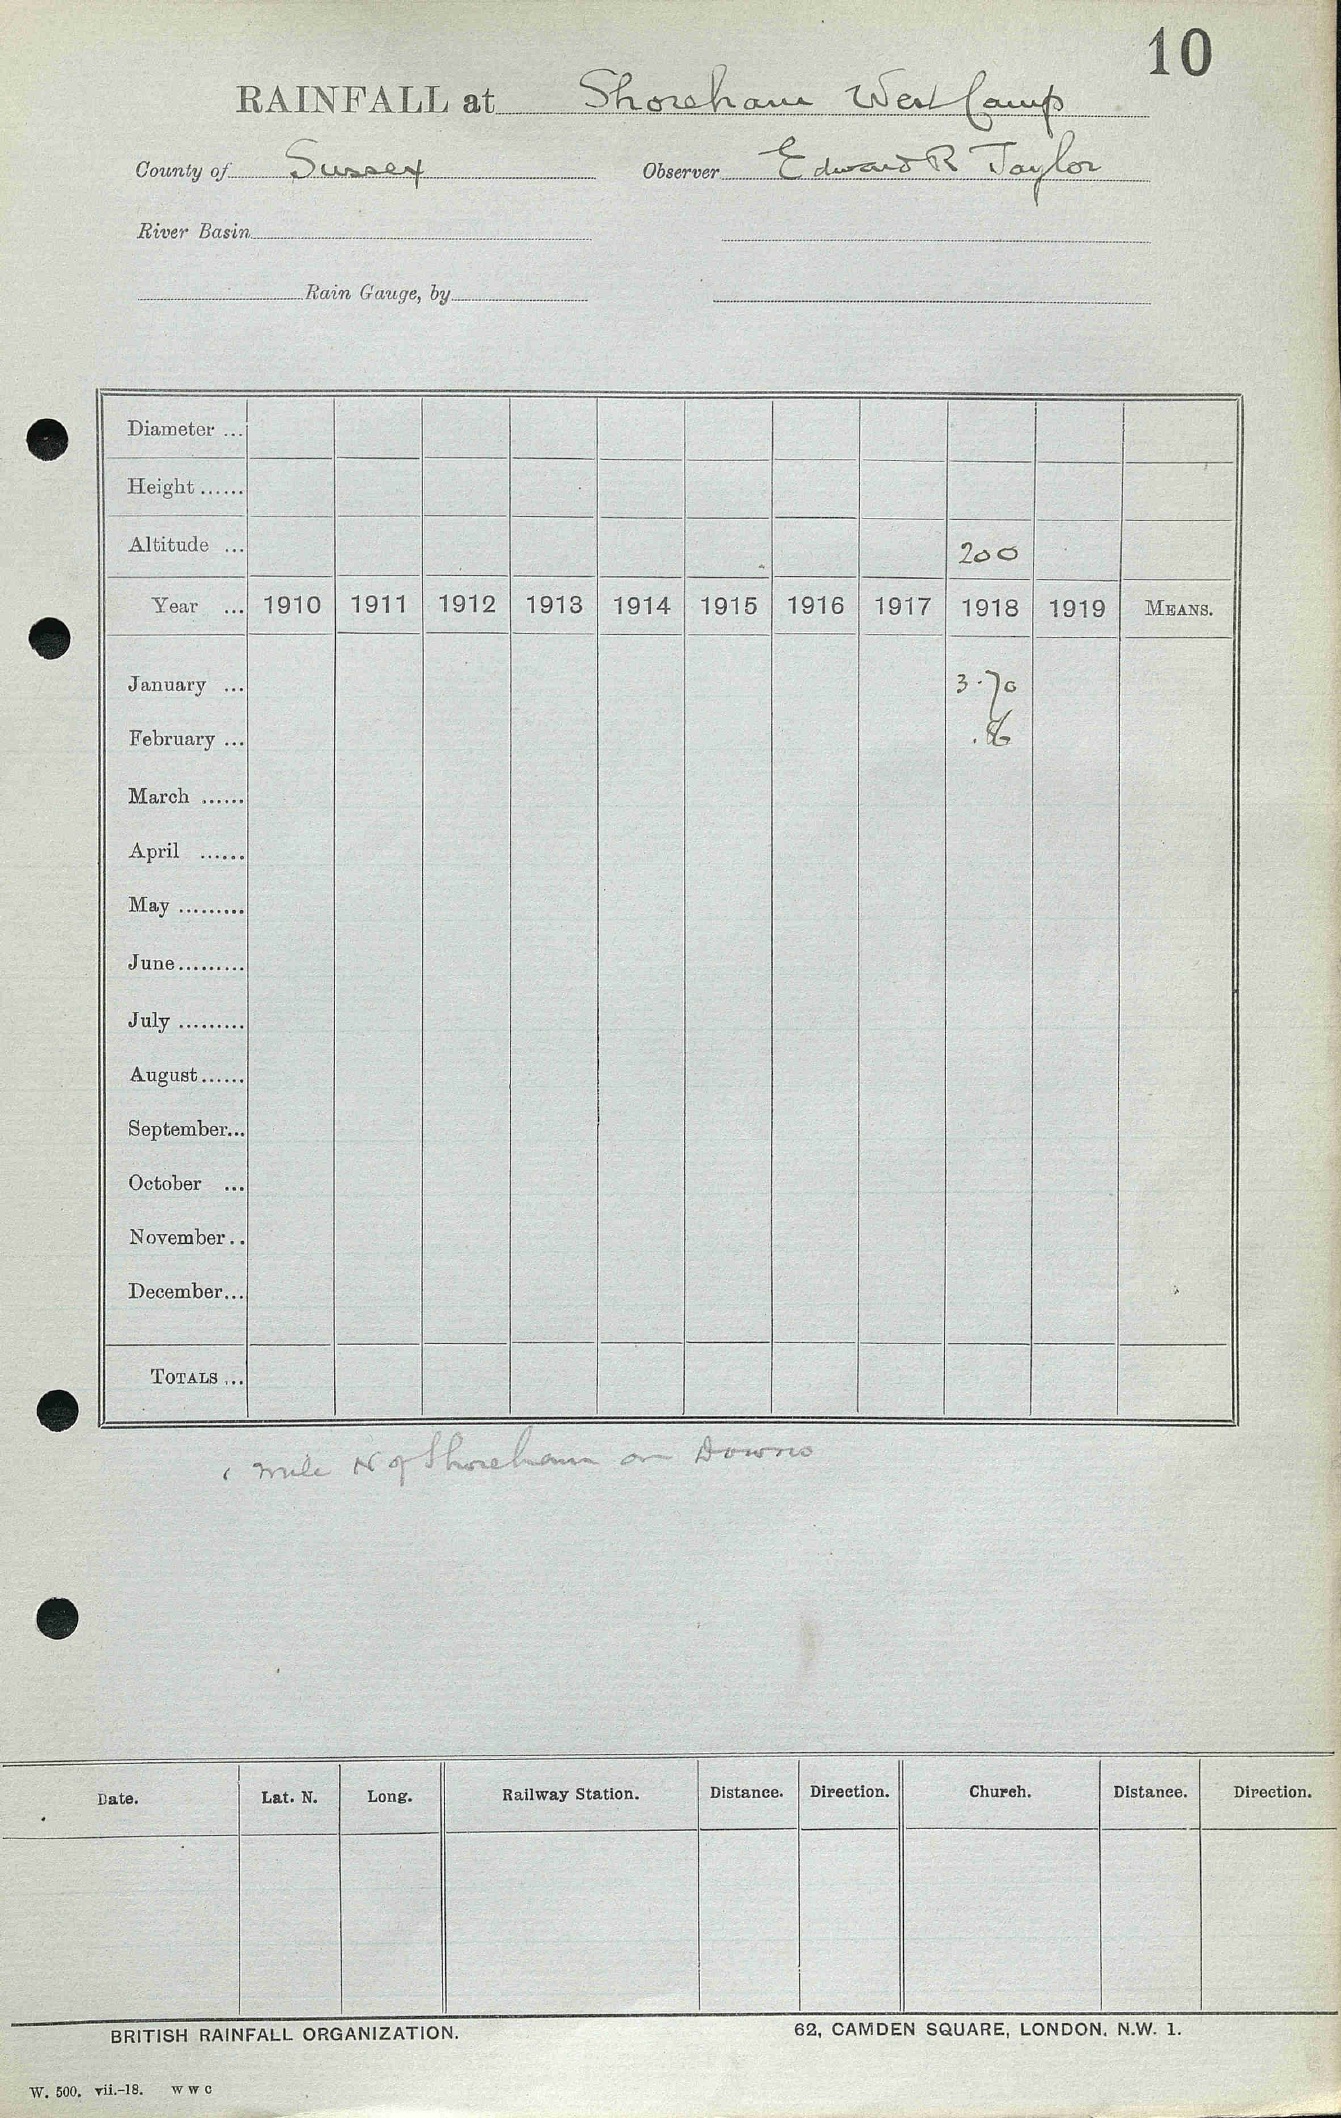 10
RAINFALL at Shoreham West Camp
County of Sussex Observer Edward R Taylor
River Basin
Rain Gauge, by
Diameter ...
Height ......
Altitude ... 200
Year ... 1910 1911 1912 1913 1914 1915 1916 1917 1918 1919 MEANS.
January ... 3.70
February ... .86
March ......
April ......
May .........
June .........
July .........
August ......
September...
October ...
November ..
December...
TOTALS ...
1 mile N of Shoreham on Downs
Date. Lat. N. Long. Railway Station. Distance. Direction. Church. Distance. Direction.
BRITISH RAINFALL ORGANIZATION. 62, CAMDEN SQUARE, LONDON, N.W. 1.
W. 500. vii.-18. W W C